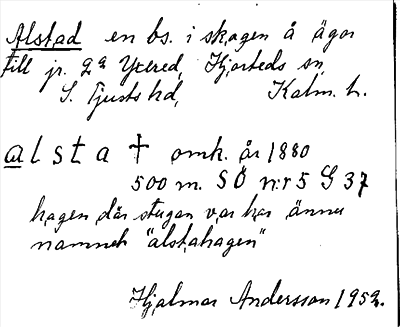 Alstad en bs. i skogen å ägor
till jr. 2ª Yxered, Hjorteds sn,
S. Tjusts hd, Kalm. l.
alsta † omk. år 1880
500 m. SÖ nr 5 G 37
hagen där stugan var har ännu
namnet "alstahagen"
Hjalmar Andersson 1952.